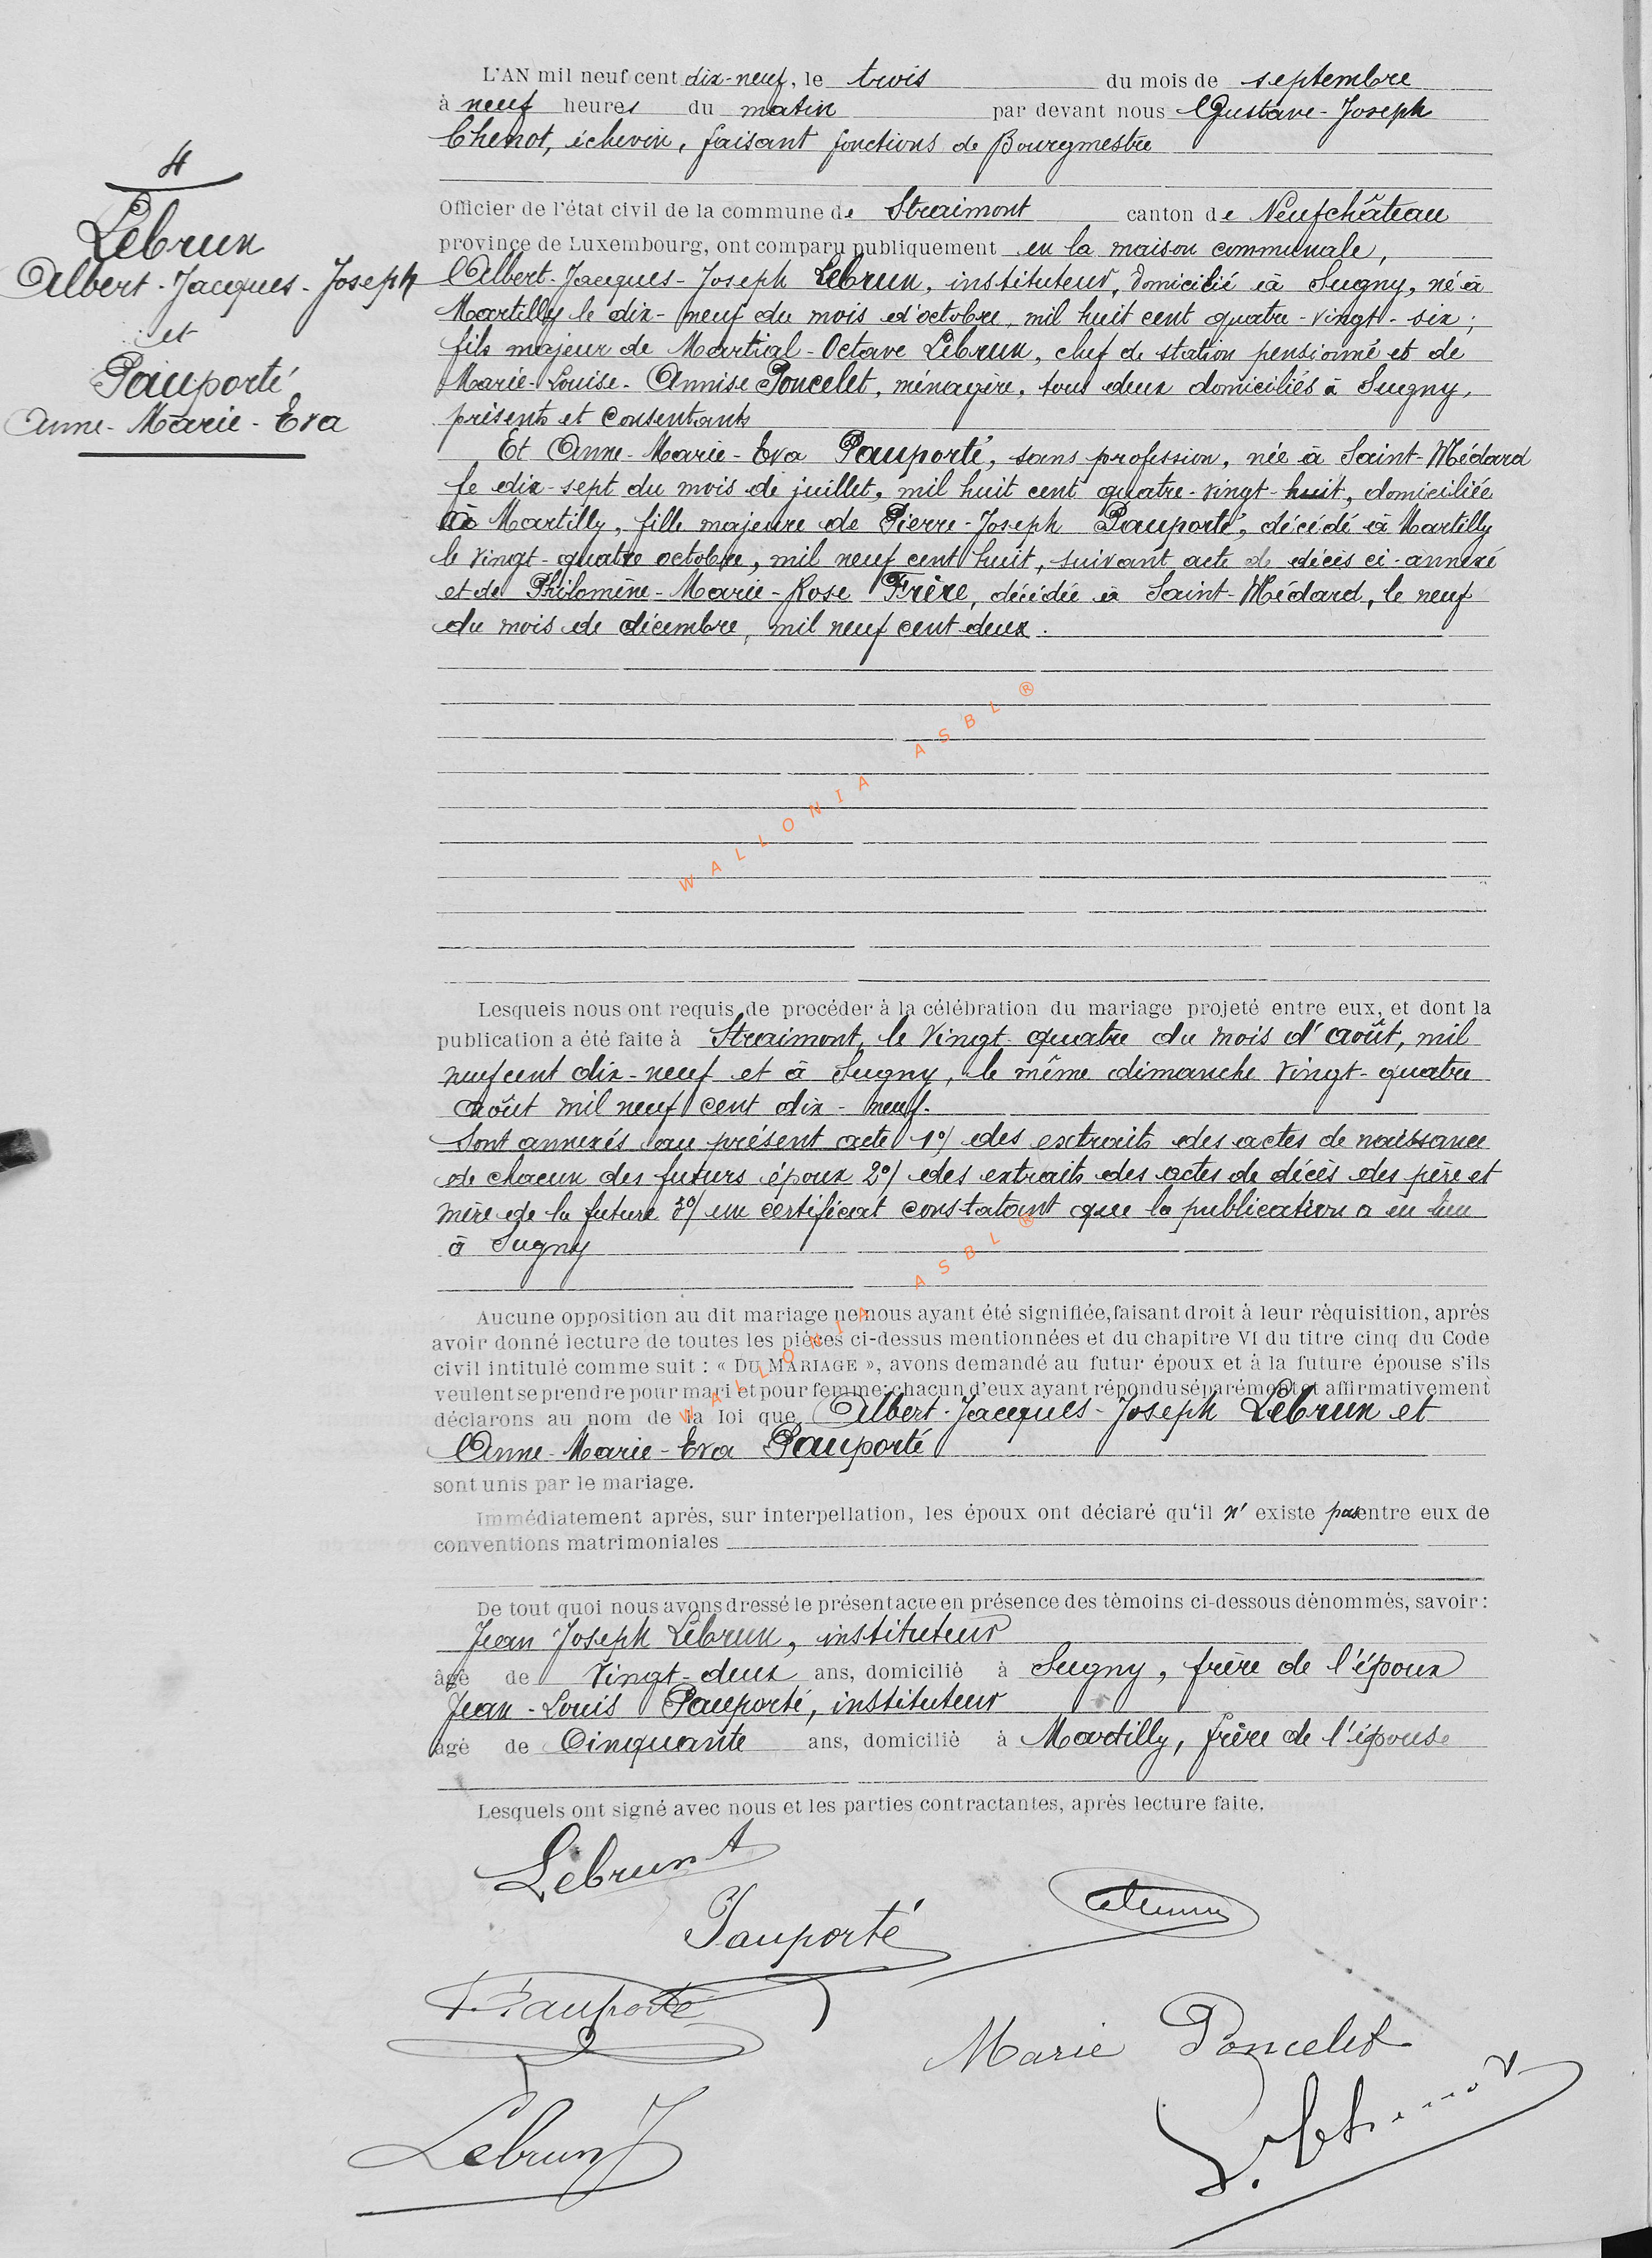 4
Lebrun
Albert-Jacques-Joseph
et
Pauporté
Anne-Marie-Eva
L'AN mil neuf cent dix-neuf, le trois du mois de septembre
à neuf heures du matin par devant nous Gustave-Joseph
Chenot, échevin, faisant fonctions de Bourgmestre
Officier de l'état civil de la commune de Straimont canton de Neufchâteau
province de Luxembourg, ont comparu publiquement en la maison communale,
Albert-Jacques-Joseph Lebrun, instituteur, domicilié à Sugny, né à
Martilly le dix-neuf du mois d'octobre, mil huit cent quatre-vingt-six;
fils majeur de Martial-Octave Lebrun, chef de station pensionné et de
Marie-Louise-Annise Poncelet, ménagère, tous deux domiciliés à Sugny,
présents et consentants
Et Anne-Marie-Eva Pauporté, sans profession, née à Saint-Médard
le dix-sept du mois de juillet, mil huit cent quatre-vingt-huit, domiciliée
à Martilly, fille majeure de Pierre-Joseph Pauporté, décédé à Martilly
le vingt-quatre octobre, mil neuf cent huit, suivant acte de décès ci-annexé
et de Philomène-Marie-Rose Frère, décédée à Saint-Médard, le neuf
du mois de décembre, mil neuf cent deux.
WALLONIA ASBL ®
Lesquels nous ont requis de procéder à la célébration du mariage projeté entre eux, et dont la
publication a été faite à Straimont, le vingt-quatre du mois d'août, mil
neuf cent dix-neuf et à Sugny, le même dimanche vingt-quatre
août mil neuf cent dix-neuf.
Sont annexés au présent acte 1°/ des extraits des actes de naissance
de chacun des futurs époux 2°/ des extraits des actes de décès des père et
mère de la future 3°/ un certificat constatant que la publication a eu lieu
à Sugny
WALLONIA ASBL ®
Aucune opposition au dit mariage ne nous ayant été signifiée, faisant droit à leur réquisition, après
avoir donné lecture de toutes les pièces ci-dessus mentionnées et du chapitre VI du titre cinq du Code
civil intitulé comme suit : « DU MARIAGE », avons demandé au futur époux et à la future épouse s'ils
veulent se prendre pour mari et pour femme; chacun d'eux ayant répondu séparément et affirmativement
déclarons au nom de la loi que Albert-Jacques-Joseph Lebrun et
Anne-Marie-Eva Pauporté
sont unis par le mariage.
Immédiatement après, sur interpellation, les époux ont déclaré qu'il n' existe pas entre eux de
conventions matrimoniales
De tout quoi nous avons dressé le présent acte en présence des témoins ci-dessous dénommés, savoir :
Jean Joseph Lebrun, instituteur
âgé de vingt-deux ans, domicilié à Sugny, frère de l'époux
Jean-Louis Pauporté, instituteur
âgé de Cinquante ans, domicilié à Martilly, frère de l'épouse
Lesquels ont signé avec nous et les parties contractantes, après lecture faite.
Lebrun A
Pauporté
Pauporté
Marie Poncelet
Lebrun J